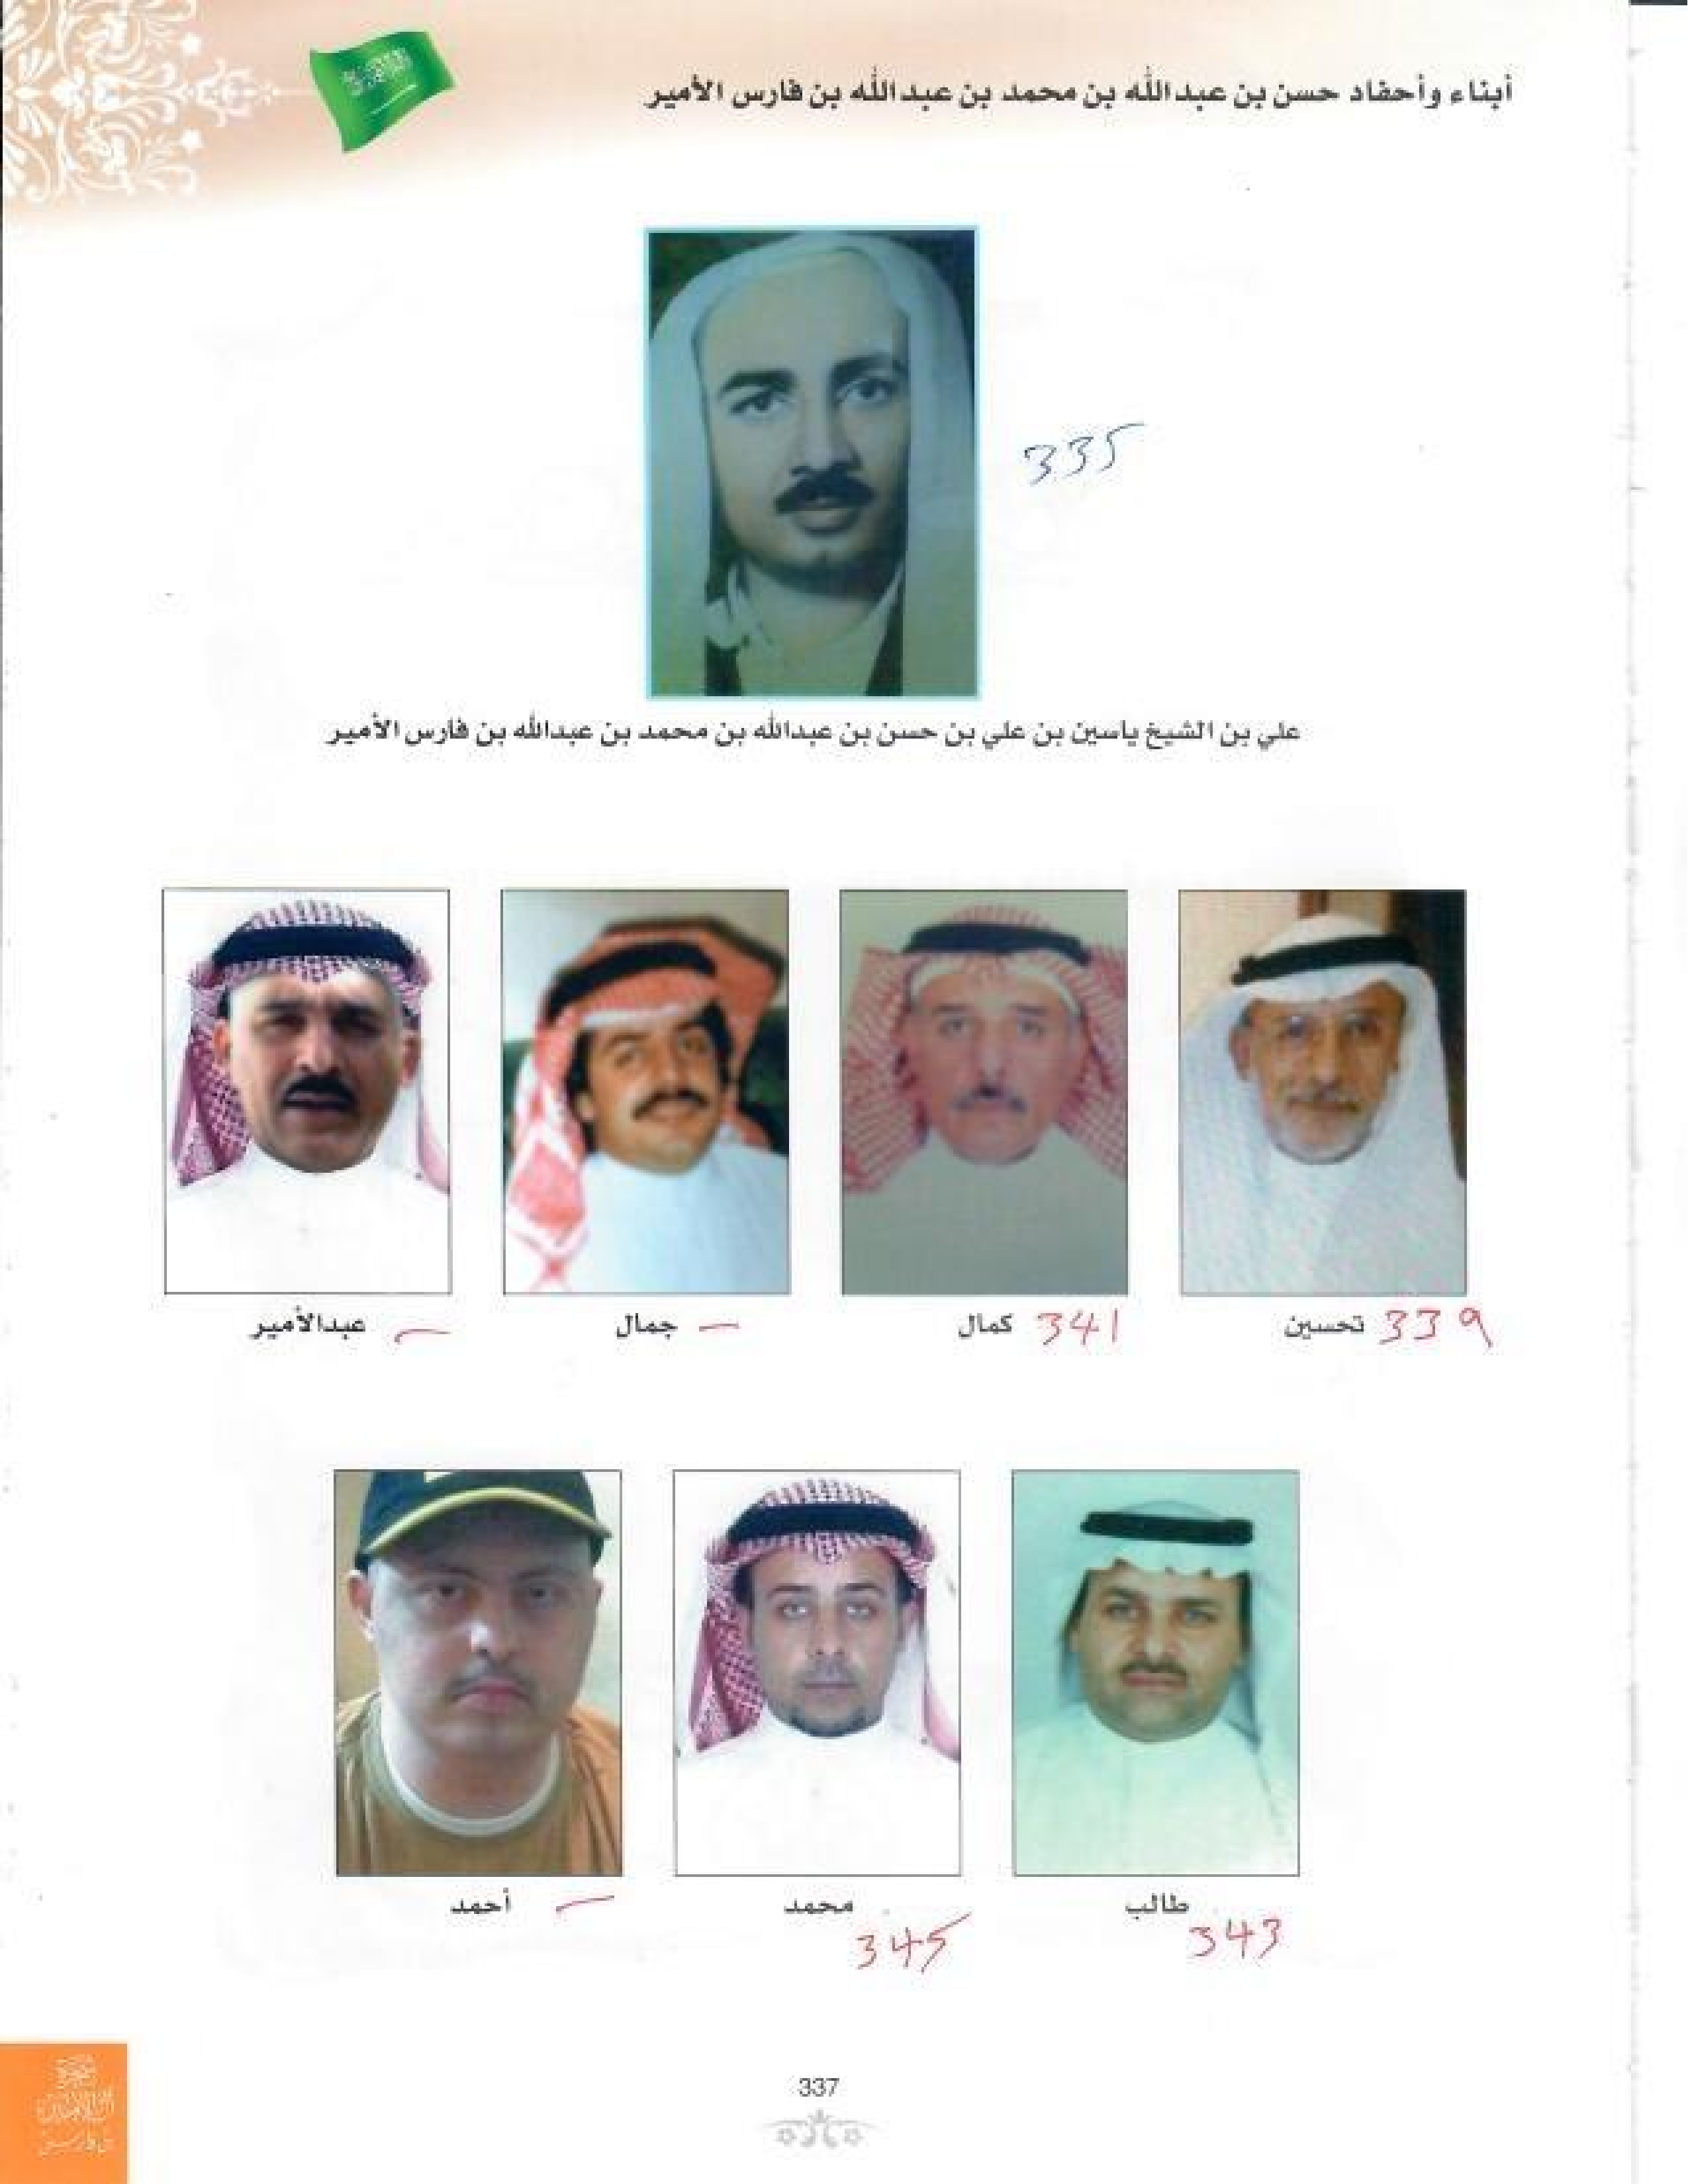 أبناء وأحفاد حسن بن عبدالله بن محمد بن عبدالله بن فارس الأمير
335
علي بن الشيخ ياسين بن علي بن حسن بن عبدالله بن محمد بن عبدالله بن فارس الأمير
339 تحسين
341 كمال
جمال —
عبدالأمير —
طالب
343
محمد
345
أحمد —
337